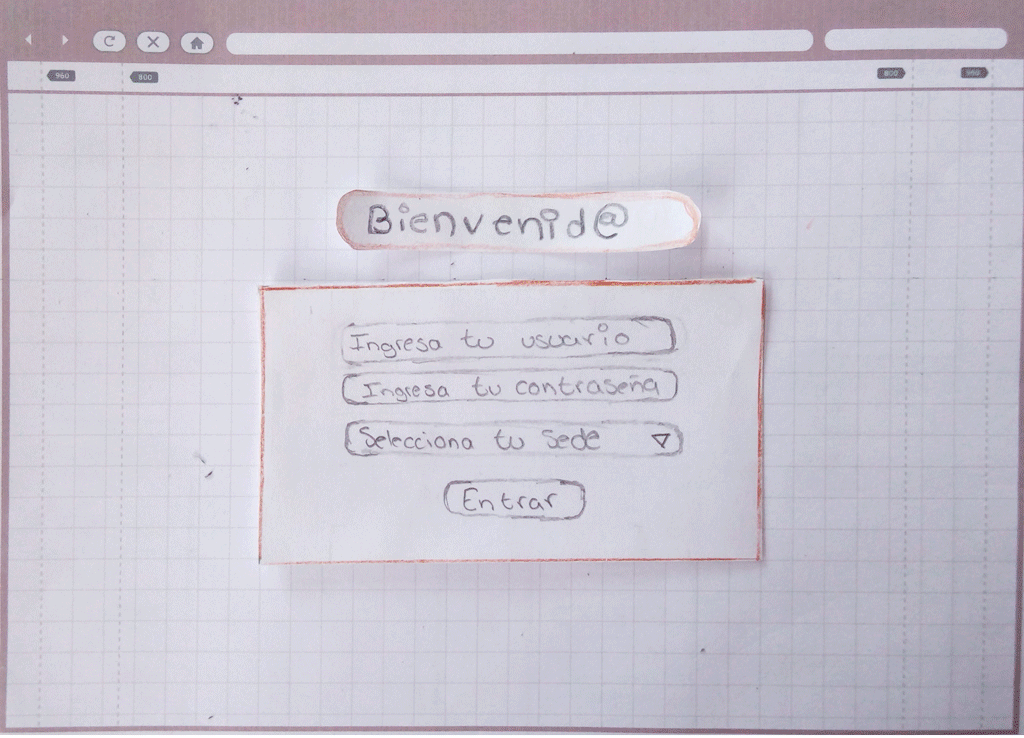 960 800 800 960
Bienvenid@
Ingresa tu usuario
Ingresa tu contraseña
Selecciona tu Sede
Entrar